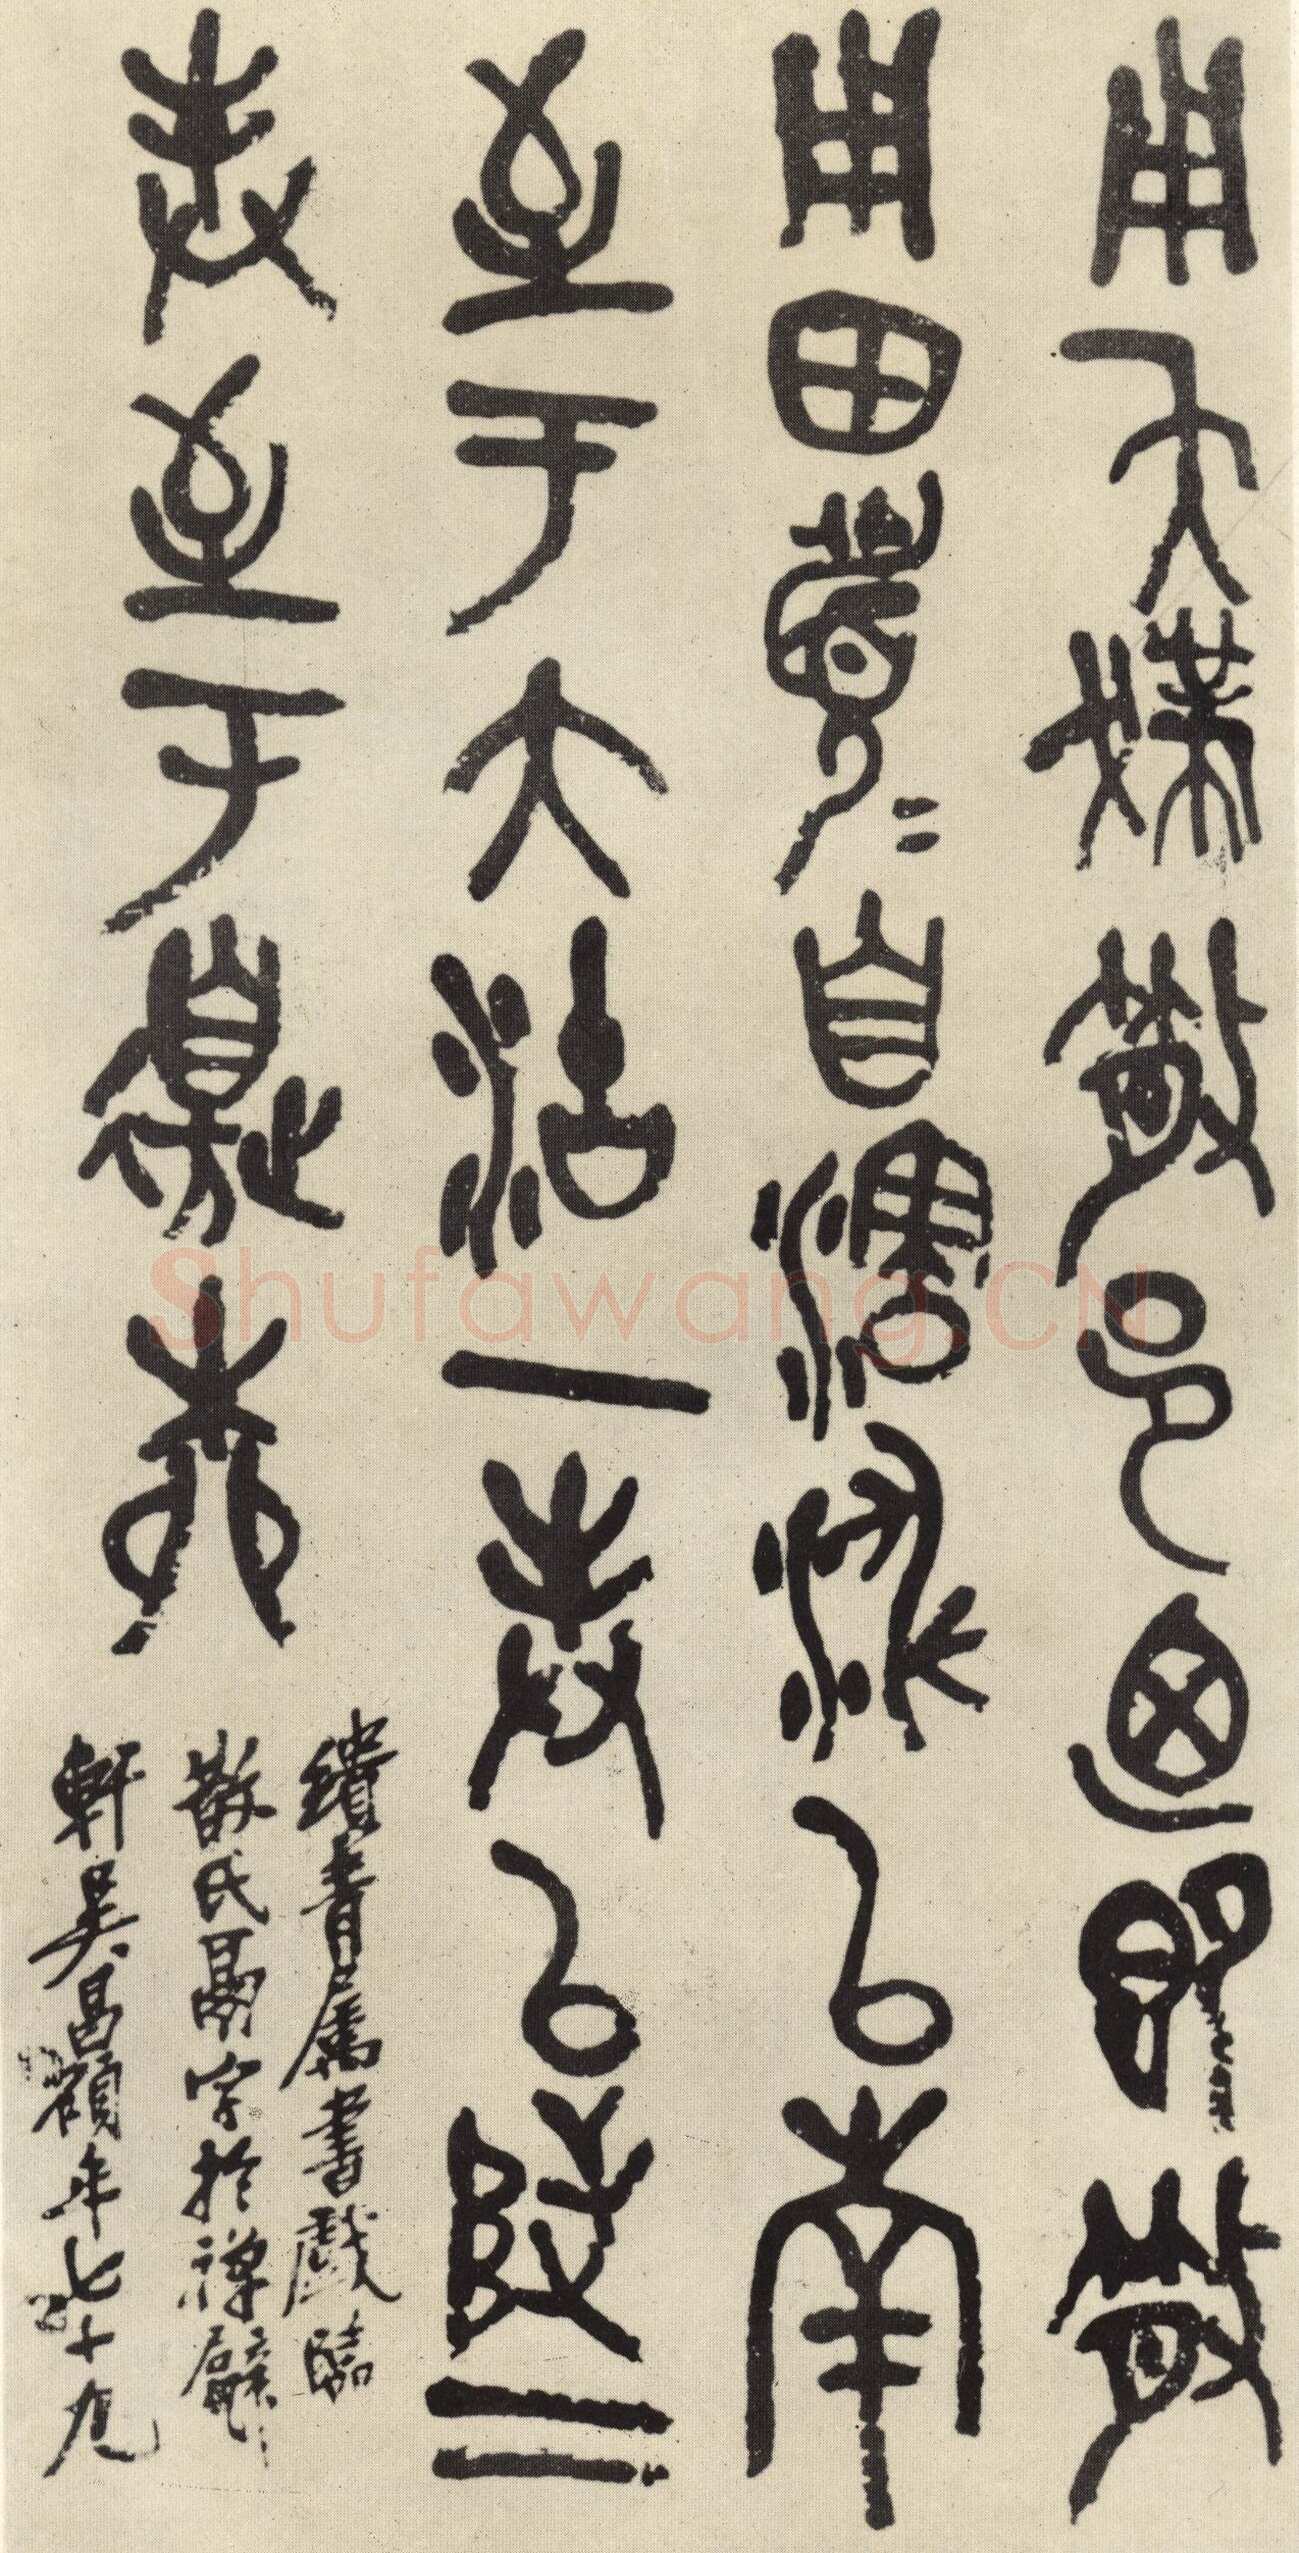 用夨撲散邑廼即散
用田眉自瀗涉以南
至于大沽一封以陟二
封至于邊柳
青屬書戲臨
散氏鬲字於禪甓
軒吳昌碩年七十九
Shufawang.CN